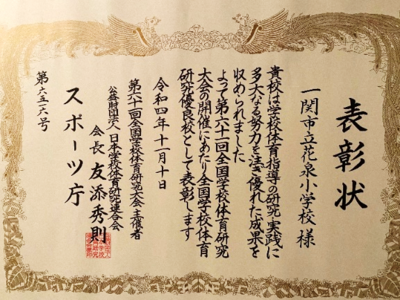 表彰状
一関市立花泉小学校 様
貴校は学校体育指導の研究実践に
多大なる努力を注ぎ優れた成果を
収められました
よって第六十一回全国学校体育研究
大会の開催にあたり全国学校体育
研究優良校として表彰します
令和四年十一月十日
第六十一回全国学校体育研究大会主催者
公益財団法人 日本学校体育研究連合会
会長 友添秀則
スポーツ庁
第六五六号